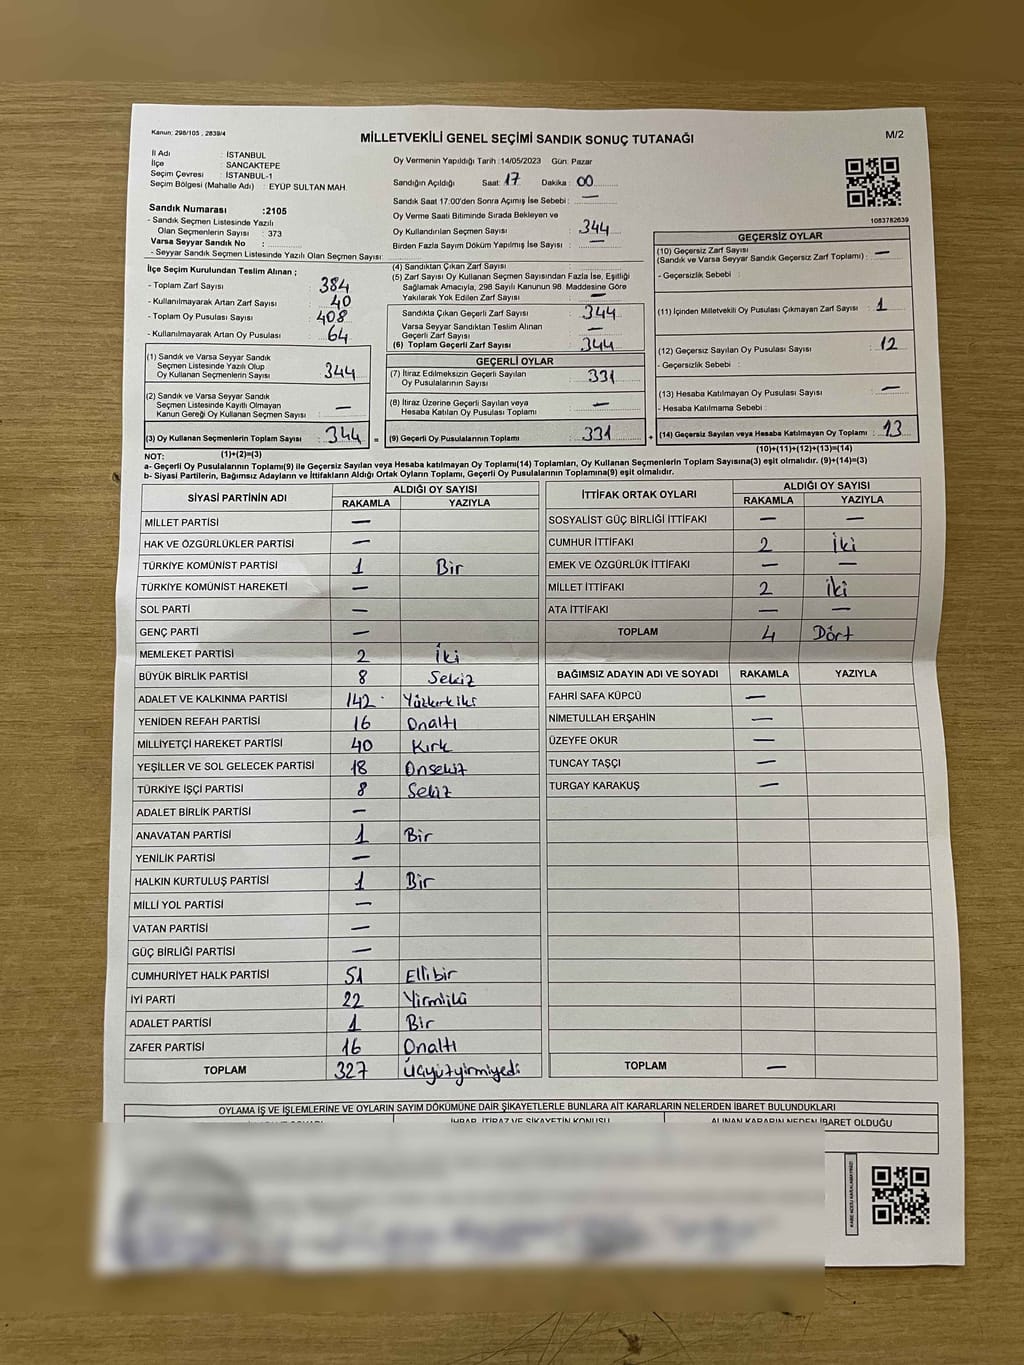 Kanun: 298/105 , 2839/4
MİLLETVEKİLİ GENEL SEÇİMİ SANDIK SONUÇ TUTANAĞI
M/2
İl Adı : İSTANBUL
İlçe : SANCAKTEPE
Seçim Çevresi : İSTANBUL-1
Seçim Bölgesi (Mahalle Adı) : EYÜP SULTAN MAH.
Sandık Numarası :2105
- Sandık Seçmen Listesinde Yazılı
Olan Seçmenlerin Sayısı : 373
Varsa Seyyar Sandık No :
- Seyyar Sandık Seçmen Listesinde Yazılı Olan Seçmen Sayısı:
Oy Vermenin Yapıldığı Tarih :14/05/2023 Gün: Pazar
Sandığın Açıldığı Saat: 17 Dakika : 00
Sandık Saat 17.00'den Sonra Açılmış İse Sebebi : —
Oy Verme Saati Bitiminde Sırada Bekleyen ve
Oy Kullandırılan Seçmen Sayısı : 344
Birden Fazla Sayım Döküm Yapılmış İse Sayısı : —
1083782639
İlçe Seçim Kurulundan Teslim Alınan ;
- Toplam Zarf Sayısı : 384
- Kullanılmayarak Artan Zarf Sayısı : 40
- Toplam Oy Pusulası Sayısı : 408
- Kullanılmayarak Artan Oy Pusulası : 64
(1) Sandık ve Varsa Seyyar Sandık
Seçmen Listesinde Yazılı Olup
Oy Kullanan Seçmenlerin Sayısı : 344
(2) Sandık ve Varsa Seyyar Sandık
Seçmen Listesinde Kayıtlı Olmayan
Kanun Gereği Oy Kullanan Seçmen Sayısı : —
(3) Oy Kullanan Seçmenlerin Toplam Sayısı : 344 =
(1)+(2)=(3)
(4) Sandıktan Çıkan Zarf Sayısı :
(5) Zarf Sayısı Oy Kullanan Seçmen Sayısından Fazla İse, Eşitliği
Sağlamak Amacıyla, 298 Sayılı Kanunun 98. Maddesine Göre
Yakılarak Yok Edilen Zarf Sayısı : —
Sandıkta Çıkan Geçerli Zarf Sayısı : 344
Varsa Seyyar Sandıktan Teslim Alınan
Geçerli Zarf Sayısı : —
(6) Toplam Geçerli Zarf Sayısı : 344
GEÇERLİ OYLAR
(7) İtiraz Edilmeksizin Geçerli Sayılan
Oy Pusulalarının Sayısı : 331
(8) İtiraz Üzerine Geçerli Sayılan veya
Hesaba Katılan Oy Pusulası Toplamı : —
(9) Geçerli Oy Pusulalarının Toplamı : 331 +
GEÇERSİZ OYLAR
(10) Geçersiz Zarf Sayısı
(Sandık ve Varsa Seyyar Sandık Geçersiz Zarf Toplamı) : —
- Geçersizlik Sebebi :
(11) İçinden Milletvekili Oy Pusulası Çıkmayan Zarf Sayısı : 1
(12) Geçersiz Sayılan Oy Pusulası Sayısı : 12
- Geçersizlik Sebebi :
(13) Hesaba Katılmayan Oy Pusulası Sayısı : —
- Hesaba Katılmama Sebebi :
(14) Geçersiz Sayılan veya Hesaba Katılmayan Oy Toplamı : 13
(10)+(11)+(12)+(13)=(14)
NOT:
a- Geçerli Oy Pusulalarının Toplamı(9) ile Geçersiz Sayılan veya Hesaba katılmayan Oy Toplamı(14) Toplamları, Oy Kullanan Seçmenlerin Toplam Sayısına(3) eşit olmalıdır. (9)+(14)=(3)
b- Siyasi Partilerin, Bağımsız Adayların ve İttifakların Aldığı Ortak Oyların Toplamı, Geçerli Oy Pusulalarının Toplamına(9) eşit olmalıdır.
SİYASİ PARTİNİN ADI ALDIĞI OY SAYISI
RAKAMLA YAZIYLA
MİLLET PARTİSİ —
HAK VE ÖZGÜRLÜKLER PARTİSİ —
TÜRKİYE KOMÜNİST PARTİSİ 1 Bir
TÜRKİYE KOMÜNİST HAREKETİ —
SOL PARTİ —
GENÇ PARTİ —
MEMLEKET PARTİSİ 2 İki
BÜYÜK BİRLİK PARTİSİ 8 Sekiz
ADALET VE KALKINMA PARTİSİ 142 Yüzkırkiki
YENİDEN REFAH PARTİSİ 16 Onaltı
MİLLİYETÇİ HAREKET PARTİSİ 40 Kırk
YEŞİLLER VE SOL GELECEK PARTİSİ 18 Onsekiz
TÜRKİYE İŞÇİ PARTİSİ 8 Sekiz
ADALET BİRLİK PARTİSİ —
ANAVATAN PARTİSİ 1 Bir
YENİLİK PARTİSİ —
HALKIN KURTULUŞ PARTİSİ 1 Bir
MİLLİ YOL PARTİSİ —
VATAN PARTİSİ —
GÜÇ BİRLİĞİ PARTİSİ —
CUMHURİYET HALK PARTİSİ 51 Ellibir
İYİ PARTİ 22 Yirmiiki
ADALET PARTİSİ 1 Bir
ZAFER PARTİSİ 16 Onaltı
TOPLAM 327 Üçyüzyirmiyedi
İTTİFAK ORTAK OYLARI ALDIĞI OY SAYISI
RAKAMLA YAZIYLA
SOSYALİST GÜÇ BİRLİĞİ İTTİFAKI — —
CUMHUR İTTİFAKI 2 İki
EMEK VE ÖZGÜRLÜK İTTİFAKI — —
MİLLET İTTİFAKI 2 İki
ATA İTTİFAKI — —
TOPLAM 4 Dört
BAĞIMSIZ ADAYIN ADI VE SOYADI RAKAMLA YAZIYLA
FAHRİ SAFA KÜPCÜ —
NİMETULLAH ERŞAHİN —
ÜZEYFE OKUR —
TUNCAY TAŞÇI —
TURGAY KARAKUŞ —
TOPLAM —
OYLAMA İŞ VE İŞLEMLERİNE VE OYLARIN SAYIM DÖKÜMÜNE DAİR ŞİKAYETLERLE BUNLARA AİT KARARLARIN NELERDEN İBARET BULUNDUKLARI
İHBAR, İTİRAZ VE ŞİKAYETİN KONUSU
ALINAN KARARIN NEDEN İBARET OLDUĞU